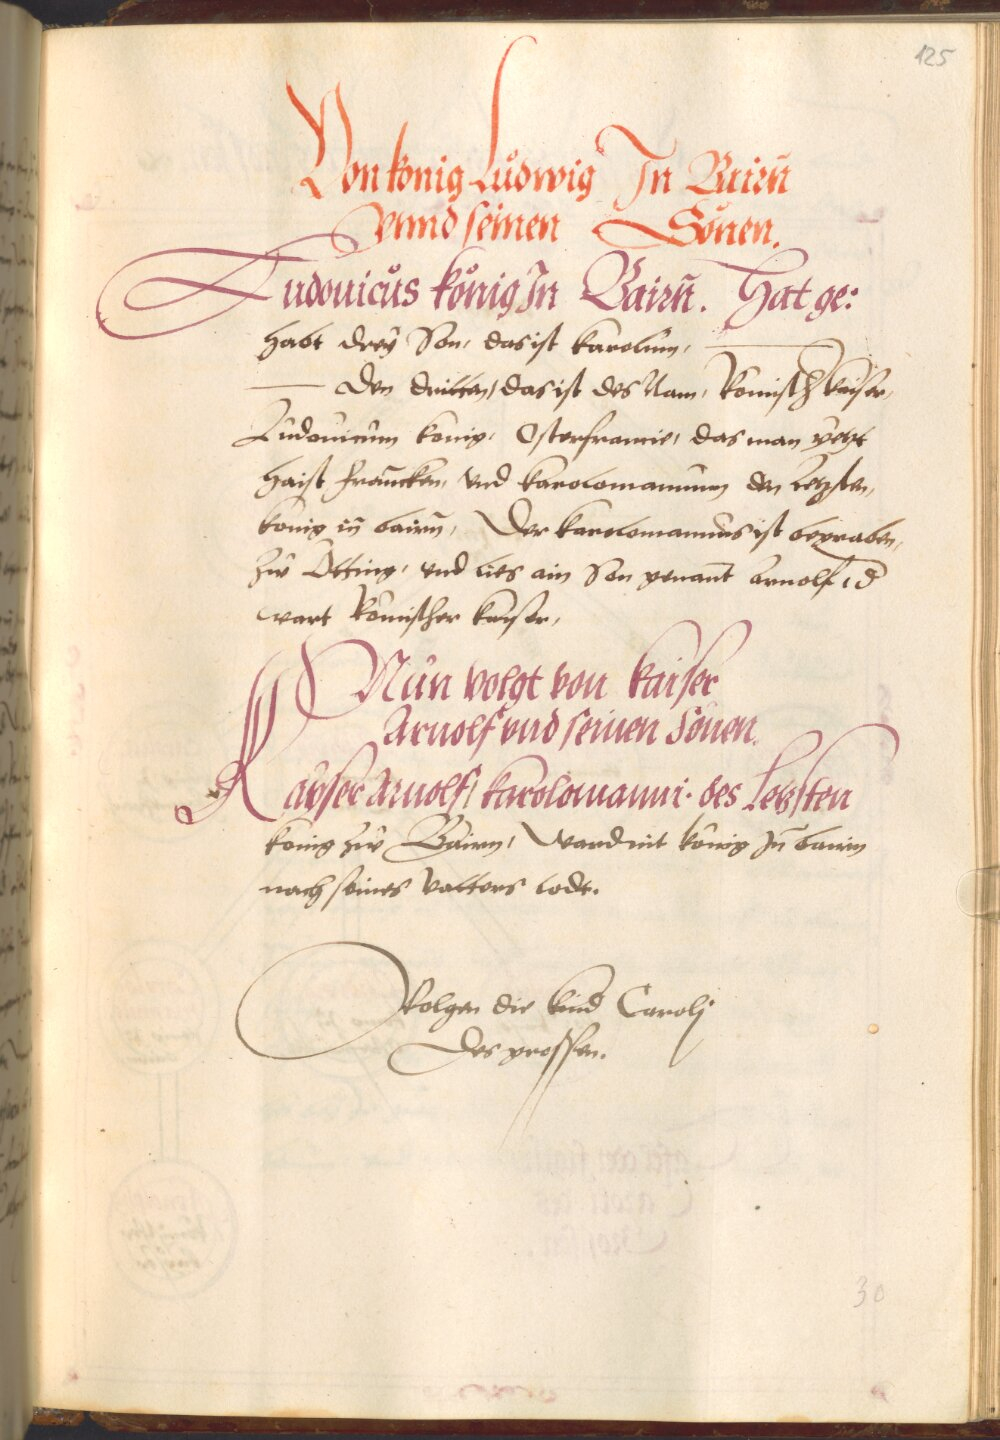 125
Von konig Lůdwig In Bairn̄
vnnd seinen Sönen.
Ludouicůs kőnig In Bairn̄. Hat ge:
habt drey Son, das ist karolum,
Den dritten, das ist des Nam, Romisch kaiser,
Ludouicum konig, Osterfrancie, das man yetzt
haist franncken, vnd karolomannum den letzsten,
konig in bairn, Der karolomannus ist begraben,
zů Otting, vnd lies ain Son genant arnolf, d
wart Romischer kaiser,
Nůn volgt von kaiser
Arnolf vnd seinen Sönen.
Kayser Arnolf, karolomanni des letzsten
konig zů Bairn, Ward mit konig In bairn
nach seines vatters todt.
Volgen die kind Carolj
des grossen.
30